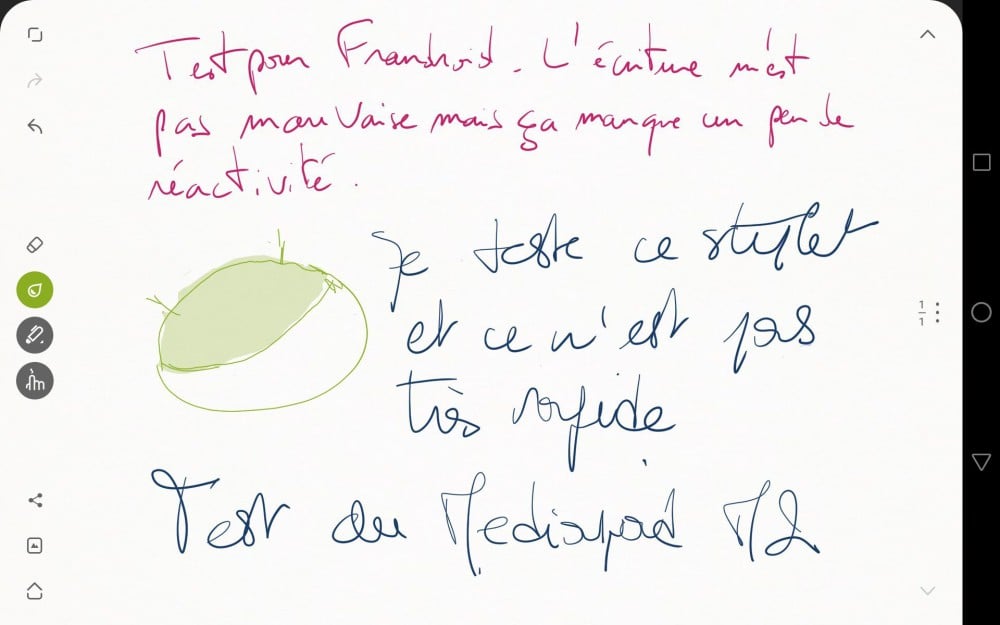 Test pour Frandroid. L'écriture n'est
pas mauvaise mais ça manque un peu de
réactivité.
Je teste ce stylet
et ce n'est pas
très rapide
Test du Mediapad M2
1
1